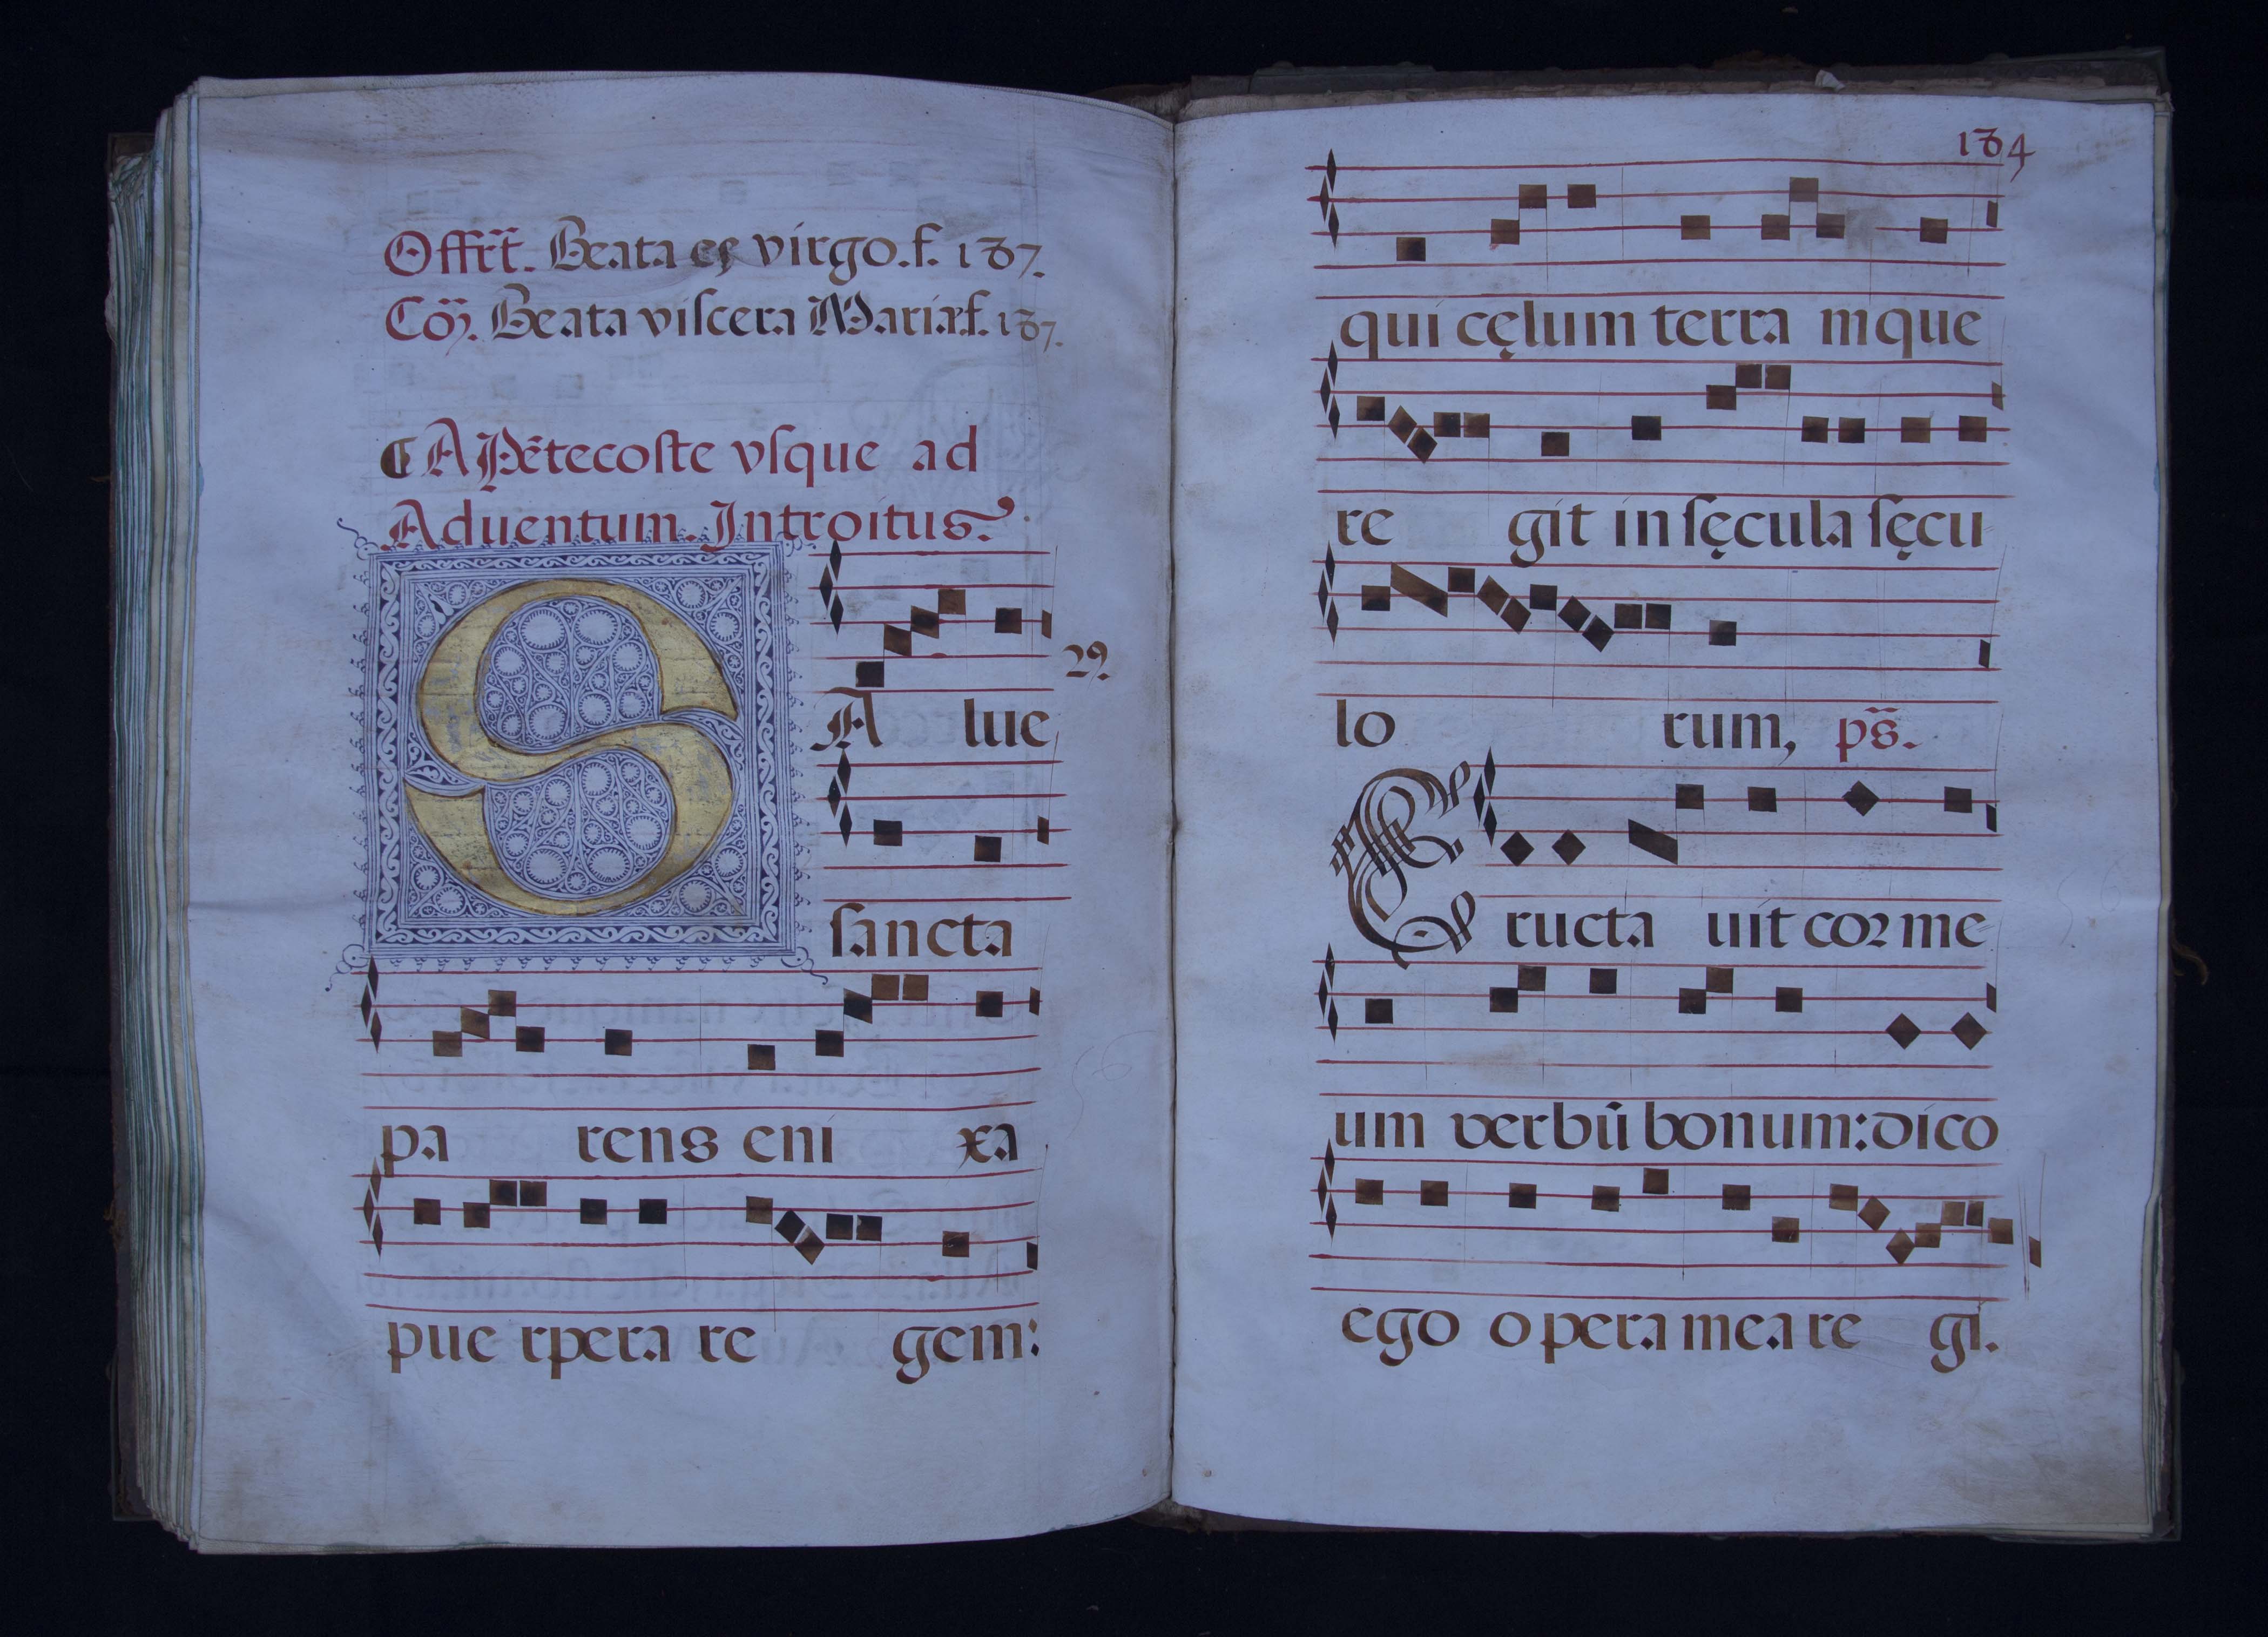 Offr̃t. Beata es virgo. f. 187.
Cõ⁊. Beata viſcera Mariæ. f. 187.
¶ A Pẽtecoſte vſque ad
Aduentum. Introitus.
29.
S A lue
ſancta
pa rens eni xa
pue rpera re gem:
184
qui cęlum terra mque
re git in ſęcula ſęcu
lo rum, ps̃.
E ructa uit coꝛ me
um verbũ bonum: dico
ego o pera mea re gi.